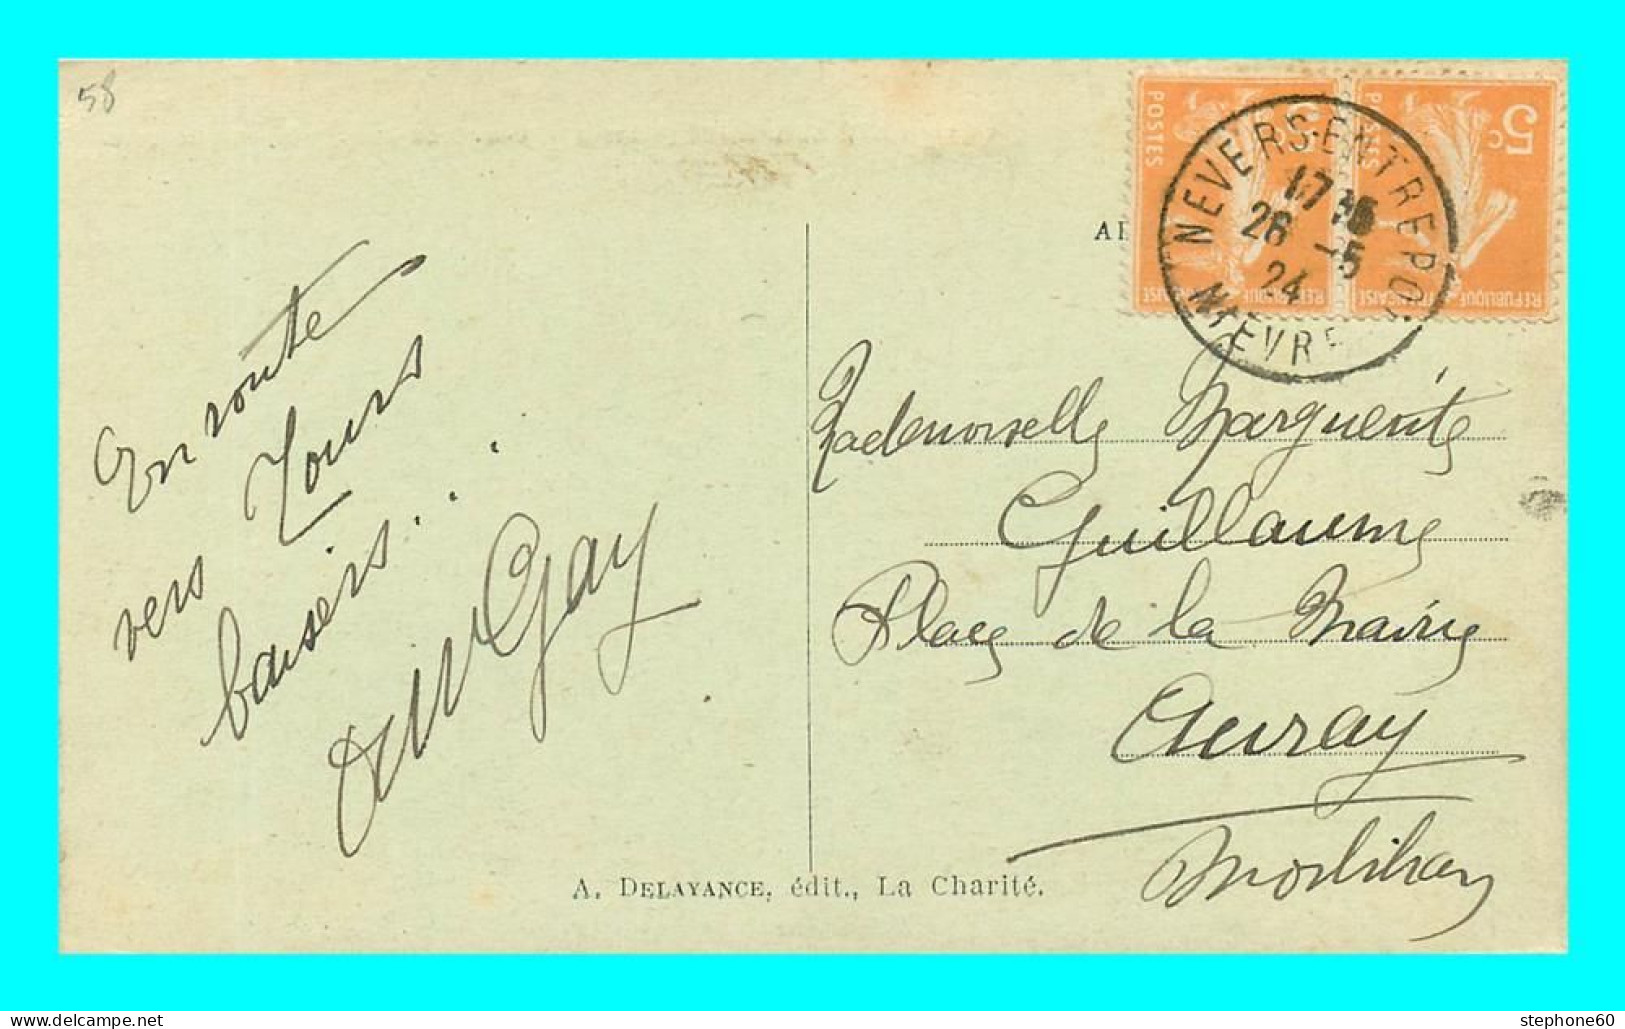 58
En route
vers Tours
baisers...
Gay
5c
POSTES
POSTES
REPUBLIQUE FRANÇAISE
REPUBLIQUE
NEVERS-ENTREPOT
17
26 -5
24
NIEVRE
Mademoiselle Marguerite
Guillaume
Place de la Mairie
Auray
Morbihan
A. DELAYANCE, édit., La Charité.
stephone60